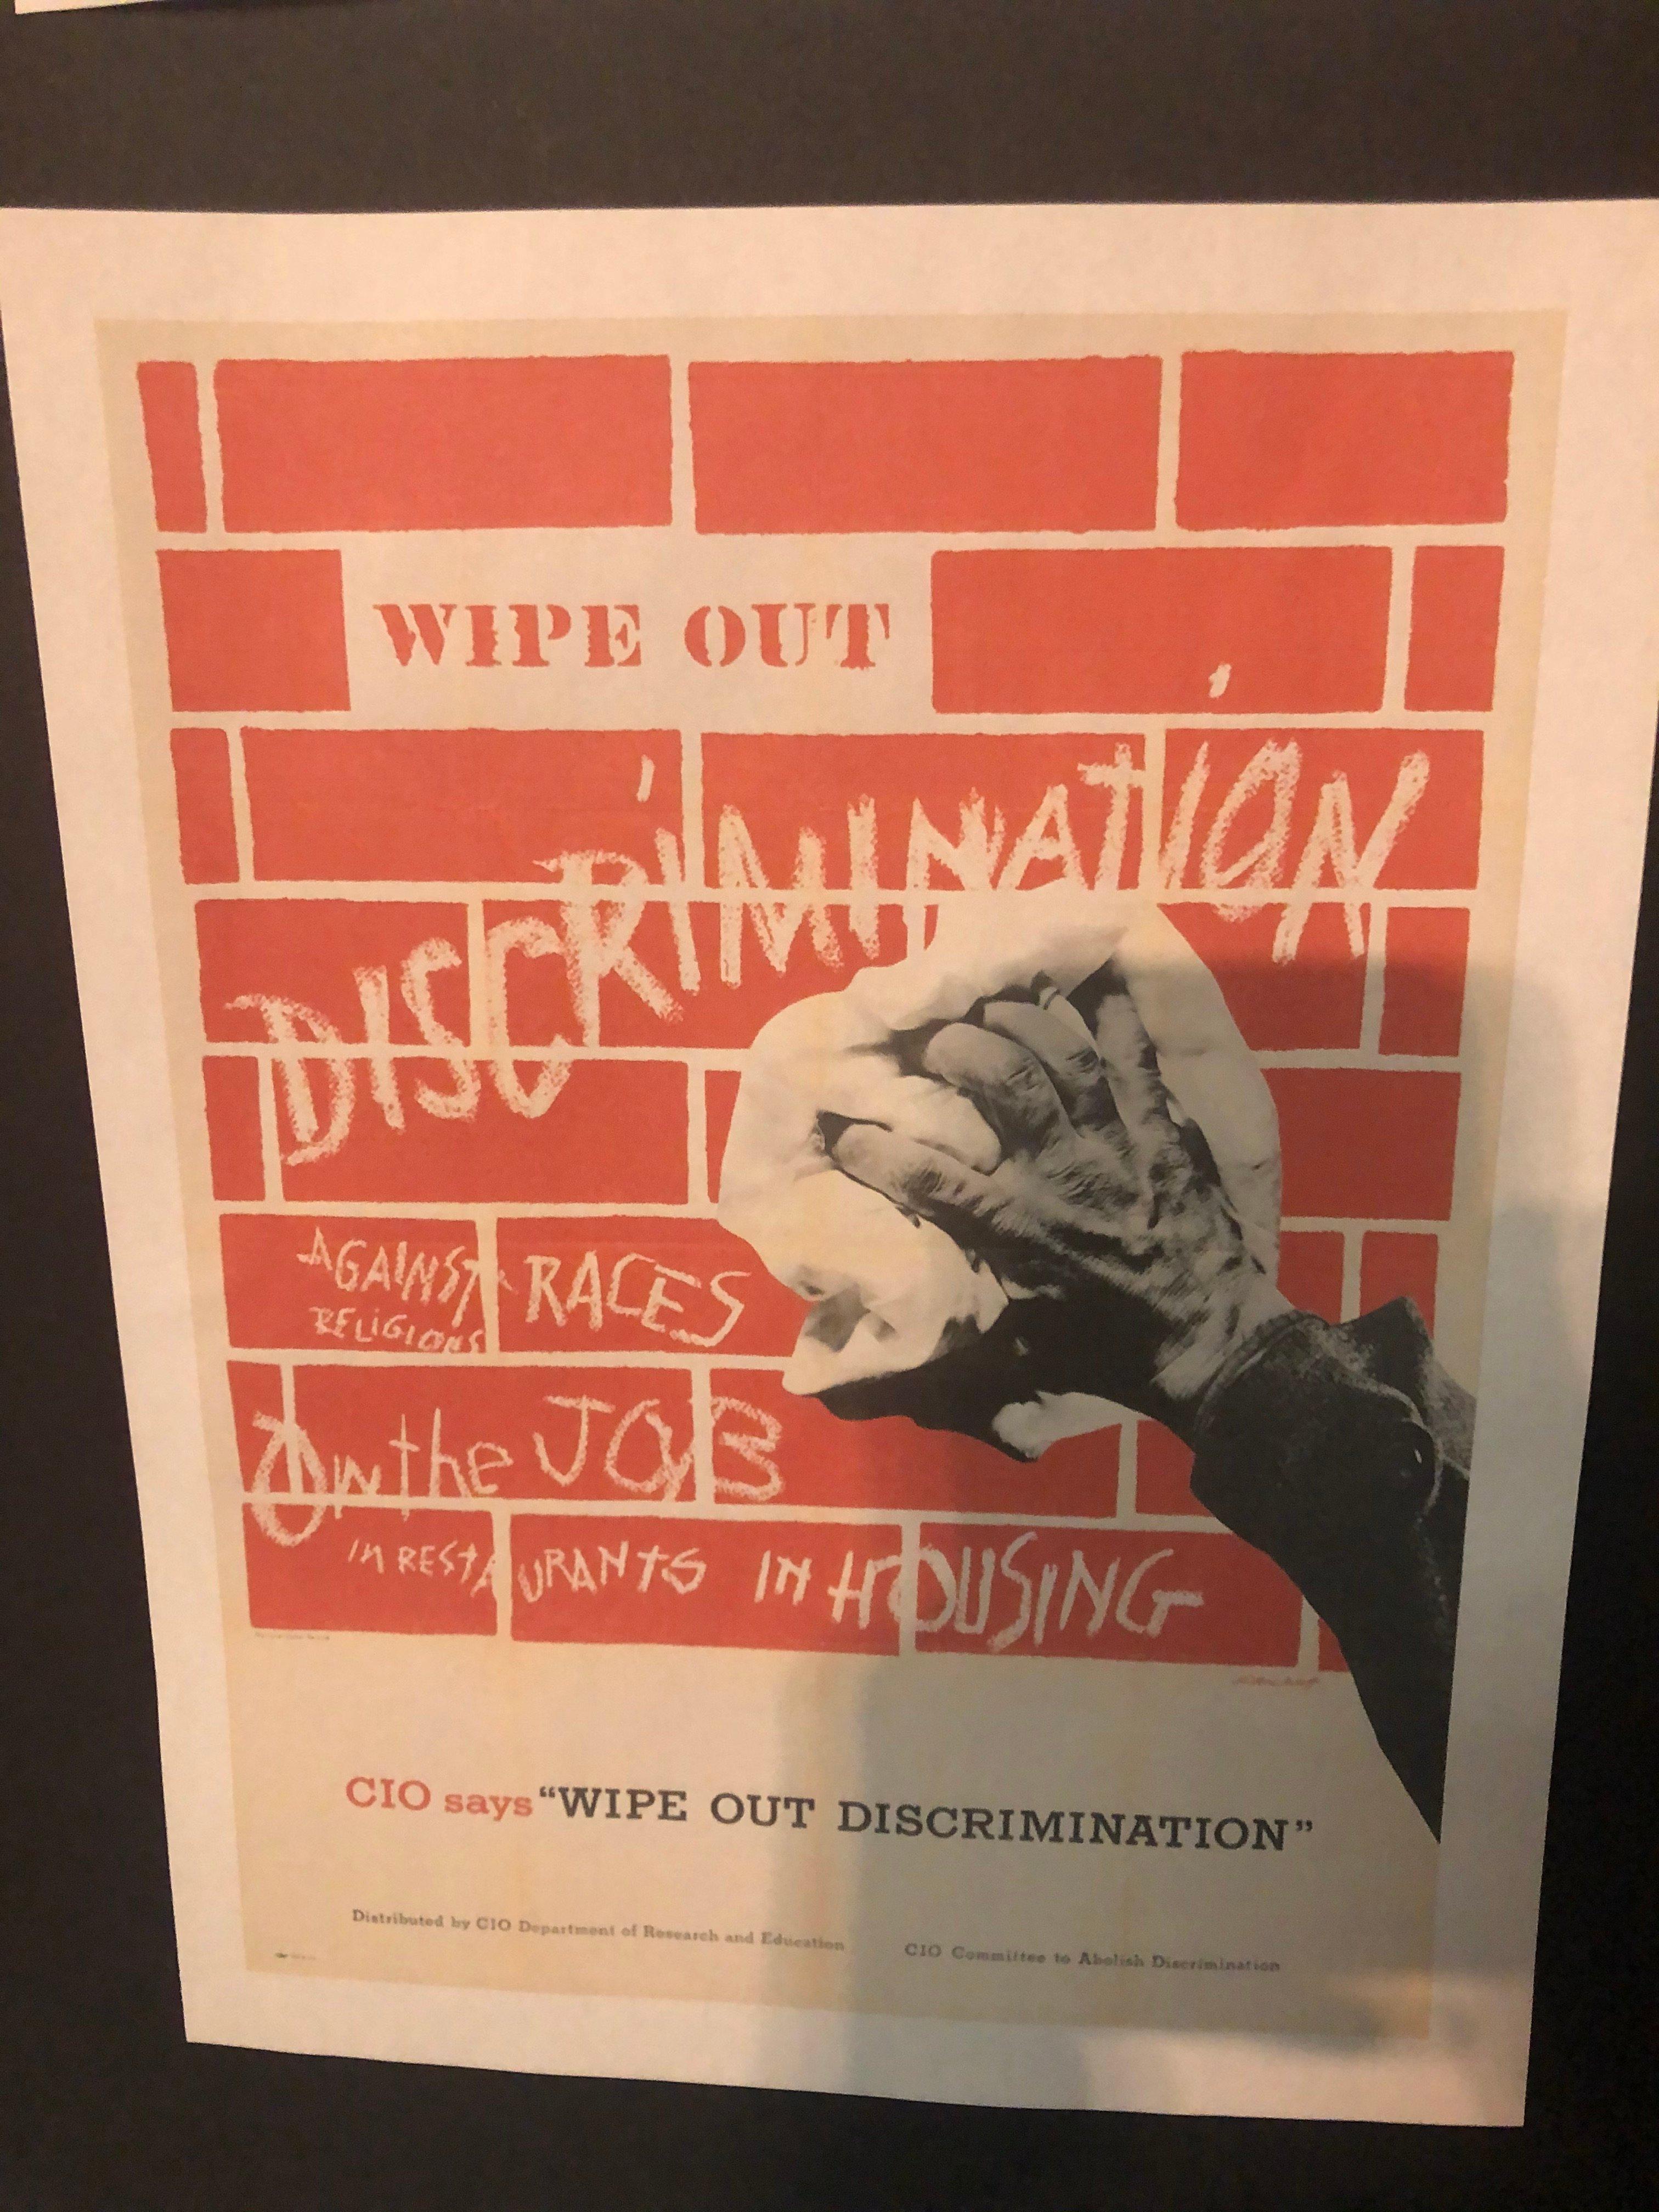 WIPE OUT
DISCRIMINATION
AGAINST RACES
RELIGIONS
On the JOB
IN RESTAURANTS IN HOUSING
CIO says "WIPE OUT DISCRIMINATION"
Distributed by CIO Department of Research and Education
CIO Committee to Abolish Discrimination